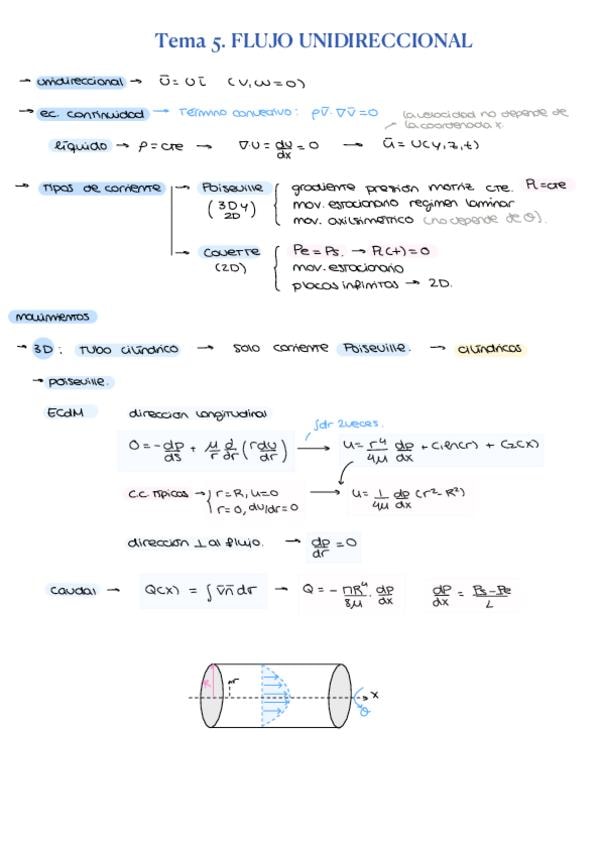 Tema 5. FLUJO UNIDIRECCIONAL
→ unidireccional → Ū = U ī (v, w = 0)
→ ec. continuidad → Término convectivo: ρv̄·∇v̄ = 0
la velocidad no depende de
la coordenada x.
líquido → ρ = cte → ∇·U = du/dx = 0 → ū = U(y, z, t)
→ Tipos de corriente → Poiseville { gradiente presión motriz cte. Pl = cte
(3D y 2D) mov. estacionario regimen laminar
mov. axisimétrico (no depende de θ).
→ Couette { Pe = Ps. → Pl(t) = 0
(2D) mov. estacionario
placas infinitas → 2D.
movimientos
→ 3D: Tubo cilíndrico → solo corriente Poiseville. → cilíndricos
→ Poiseville.
ECdM dirección longitudinal
∫dr 2 veces.
0 = -dp/ds + μ/r d/dr (r du/dr) → u = r⁴/4μ dp/dx + C1 ln(r) + C2(x)
c.c. típicos → { r = R, u = 0 → u = 1/4μ dp/dx (r² - R²)
r = 0, du/dr = 0
dirección ⊥ al flujo. → dp/dr = 0
caudal → Q(x) = ∫ v̄ n̄ dσ → Q = - πR⁴/8μ · dp/dx dP/dx = Ps - Pe/L
R r x
θ